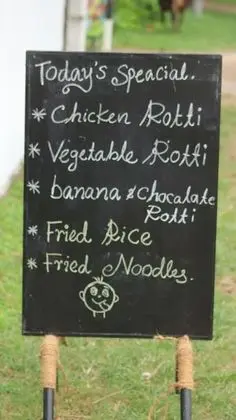 Today's Speacial.
* Chicken Rotti
* Vegetable Rotti
* banana & Chocalate
Rotti
* Fried Rice
* Fried Noodles.